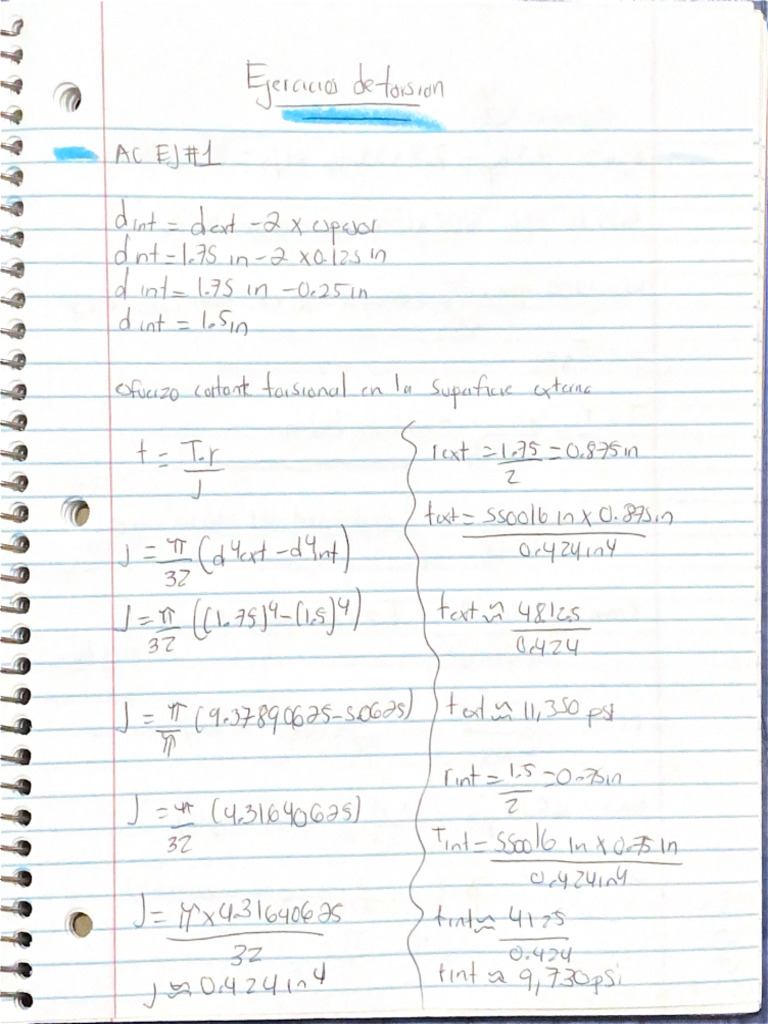 Ejercicios de torsion
AC EJ #1
dint = dext - 2 x espesor
dint = 1.75 in - 2 x 0.125 in
dint = 1.75 in - 0.25 in
dint = 1.5 in
esfuerzo cortante torsional en la superficie externa
t = T.r / J
J = π/32 (d⁴ext - d⁴int)
J = π/32 ((1.75)⁴ - (1.5)⁴)
J = π/π (9.37890625 - 5.0625)
J = π/32 (4.31640625)
J = π x 4.31640625 / 32
J ≈ 0.424 in⁴
rext = 1.75/2 = 0.875 in
text = 5500 lb in x 0.875 in / 0.424 in⁴
text ≈ 4812.5 / 0.424
text ≈ 11,350 psi
rint = 1.5/2 = 0.75 in
Tint = 5500 lb in x 0.75 in / 0.424 in⁴
tint ≈ 4125 / 0.424
tint ≈ 9,730 psi